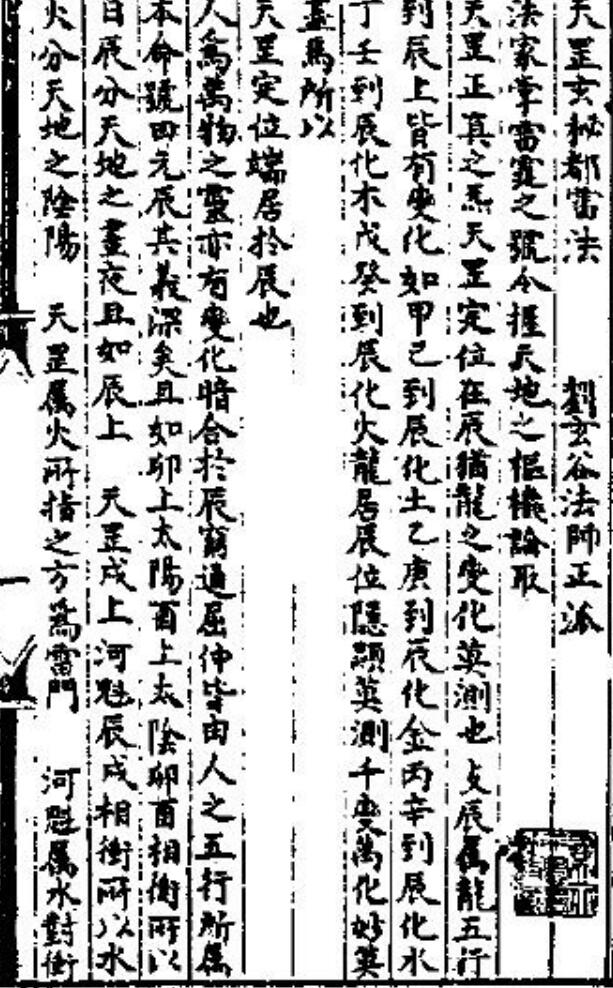 天罡玄秘都雷法 劉玄谷法師正派
法家掌雷霆之號令握天地之樞機論取
天罡正真之炁天罡定位在辰猶龍之變化莫測也支辰屬龍五行
到辰上皆有變化如甲己到辰化土乙庚到辰化金丙辛到辰化水
丁壬到辰化木戊癸到辰化火龍居辰位隱顯莫測千變萬化妙莫
盡焉所以
天罡定位端居於辰也
人為萬物之靈亦有變化暗合於辰窮通屈伸皆由人之五行所屬
本命號曰元辰其義深矣且如卯上太陽酉上太陰卯酉相衝所以
日辰分天地之晝夜且如辰上 天罡戌上河魁辰戌相衝所以水
火分天地之陰陽 天罡屬火所指之方為雷門 河魁屬水對衝